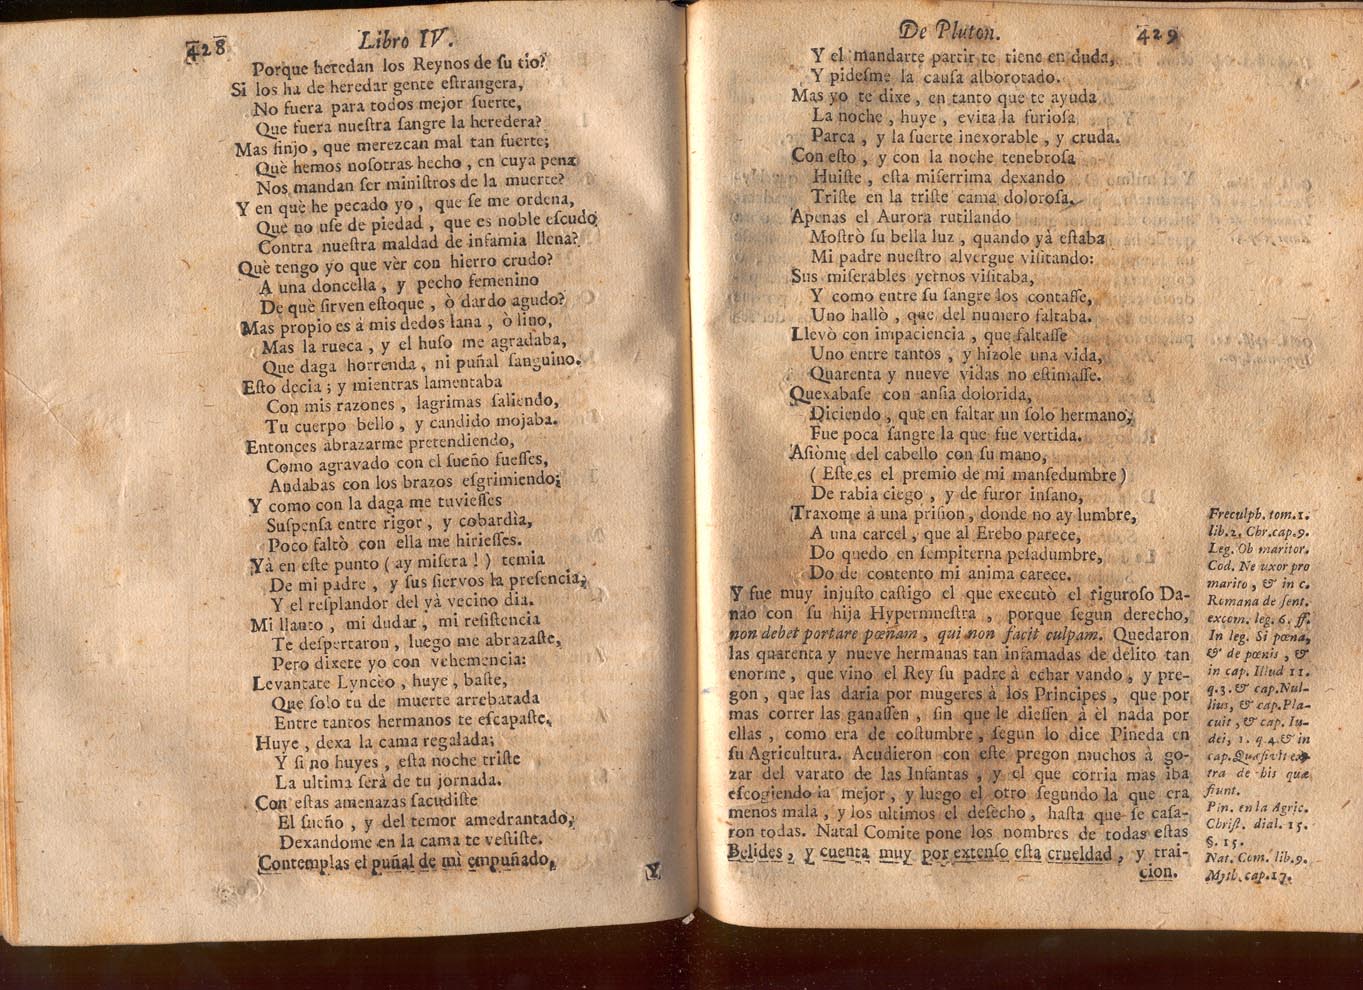 428
Libro IV.
Porque heredan los Reynos de ſu tio?
Si los ha de heredar gente eſtrangera,
No fuera para todos mejor ſuerte,
Que fuera nueſtra ſangre la heredera?
Mas finjo, que merezcan mal tan fuerte;
Què hemos noſotras hecho, en cuya pena
Nos mandan ſer miniſtros de la muerte?
Y en què he pecado yo, que ſe me ordena,
Que no uſe de piedad, que es noble eſcudo
Contra nueſtra maldad de infamia llena?
Què tengo yo que vèr con hierro crudo?
A una doncella, y pecho femenino
De què ſirven eſtoque, ò dardo agudo?
Mas propio es á mis dedos lana, ò lino,
Mas la rueca, y el huſo me agradaba,
Que daga horrenda, ni puñal ſanguino.
Eſto decia; y mientras lamentaba
Con mis razones, lagrimas ſaliendo,
Tu cuerpo bello, y candido mojaba.
Entonces abrazarme pretendiendo,
Como agravado con el ſueño fueſſes,
Andabas con los brazos eſgrimiendo;
Y como con la daga me tuvieſſes
Suſpenſa entre rigor, y cobardìa,
Poco faltò con ella me hirieſſes.
Yà en eſte punto (ay miſera!) temia
De mi padre, y ſus ſiervos la preſencia,
Y el reſplandor del yà vecino dia.
Mi llanto, mi dudar, mi reſiſtencia
Te deſpertaron, luego me abrazaſte,
Pero dixete yo con vehemencia:
Levantate Lyncèo, huye, baſte,
Que ſolo tu de muerte arrebatada
Entre tantos hermanos te eſcapaſte.
Huye, dexa la cama regalada;
Y ſi no huyes, eſta noche triſte
La ultima ſerà de tu jornada.
Con eſtas amenazas ſacudiſte
El ſueño, y del temor amedrantado,
Dexandome en la cama te veſtiſte.
Contemplas el puñal de mì empuñado,
Y
De Pluton.
429
Y el mandarte partir te tiene en duda,
Y pideſme la cauſa alborotado.
Mas yo te dixe, en tanto que te ayuda
La noche, huye, evita la furioſa
Parca, y la ſuerte inexorable, y cruda.
Con eſto, y con la noche tenebroſa
Huiſte, eſta miſerrima dexando
Triſte en la triſte cama doloroſa.
Apenas el Aurora rutilando
Moſtrò ſu bella luz, quando yà eſtaba
Mi padre nueſtro alvergue viſitando:
Sus miſerables yernos viſitaba,
Y como entre ſu ſangre los contaſſe,
Uno hallò, que del numero faltaba.
Llevò con impaciencia, que faltaſſe
Uno entre tantos, y hizole una vida,
Quarenta y nueve vidas no eſtimaſſe.
Quexabaſe con anſia dolorida,
Diciendo, que en faltar un ſolo hermano,
Fue poca ſangre la que fue vertida.
Aſiòme del cabello con ſu mano,
(Eſte es el premio de mi manſedumbre)
De rabia ciego, y de furor inſano,
Traxome à una priſion, donde no ay lumbre,
A una carcel, que al Erebo parece,
Do quedo en ſempiterna peſadumbre,
Do de contento mi anima carece.
Y fue muy injuſto caſtigo el que executò el riguroſo Da-
nao con ſu hija Hypermneſtra, porque ſegun derecho,
non debet portare pœnam, qui non facit culpam. Quedaron
las quarenta y nueve hermanas tan infamadas de delito tan
enorme, que vino el Rey ſu padre à echar vando, y pre-
gon, que las daria por mugeres à los Principes, que por
mas correr las ganaſſen, ſin que le dieſſen à èl nada por
ellas, como era de coſtumbre, ſegun lo dice Pineda en
ſu Agricultura. Acudieron con eſte pregon muchos à go-
zar del varato de las Infantas, y el que corria mas iba
eſcogiendo la mejor, y luego el otro ſegundo la que era
menos mala, y los ultimos el deſecho, haſta que ſe caſa-
ron todas. Natal Comite pone los nombres de todas eſtas
Belides, y cuenta muy por extenſo eſta crueldad, y trai-
cion.
Freculph. tom. 1.
lib. 2. Chr. cap. 9.
Leg. Ob maritor.
Cod. Ne uxor pro
marito, & in c.
Romana de ſent.
excom. leg. 6. ff.
In leg. Si pœna,
& de pœnis, &
in cap. Illud 11.
q. 3. & cap. Nul-
lius, & cap. Pla-
cuit, & cap. Iu-
dei, 1. q. 4. & in
cap. Quæſivit ex-
tra de his quæ
fiunt.
Pin. en la Agric.
Chriſt. dial. 15.
§. 15.
Nat. Com. lib. 9.
Myth. cap. 17.